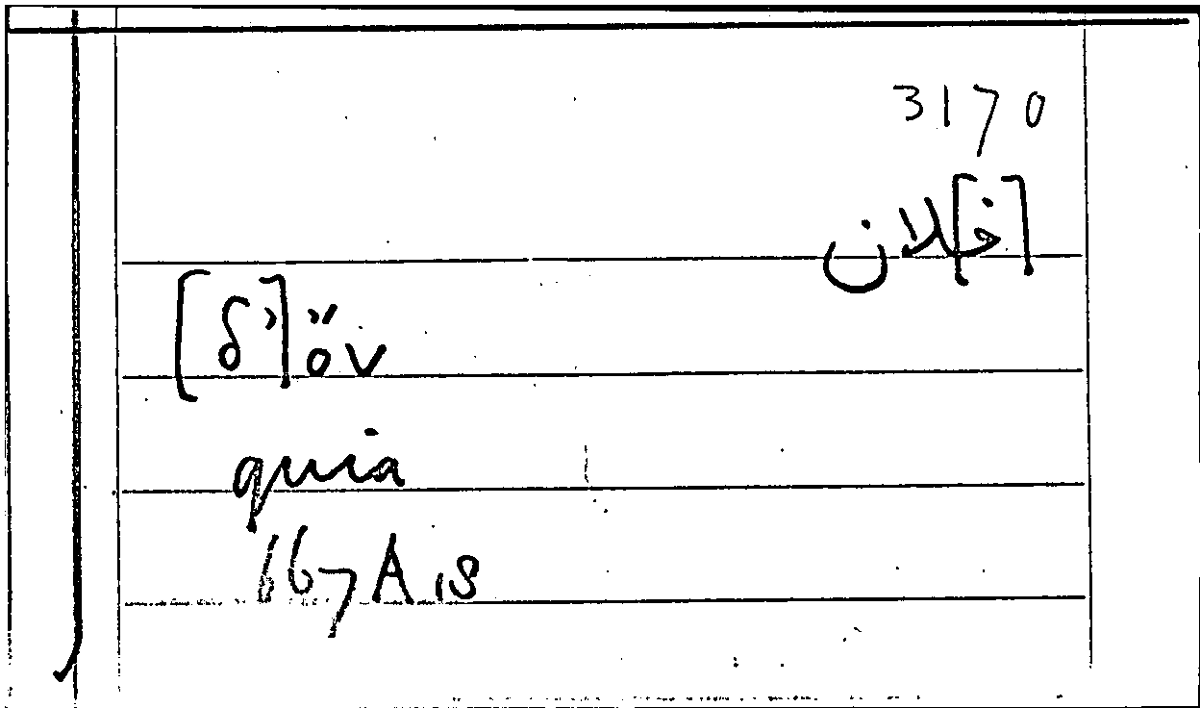 3170
[ف]لان
[δ’] ὄν
quia
167 A 18